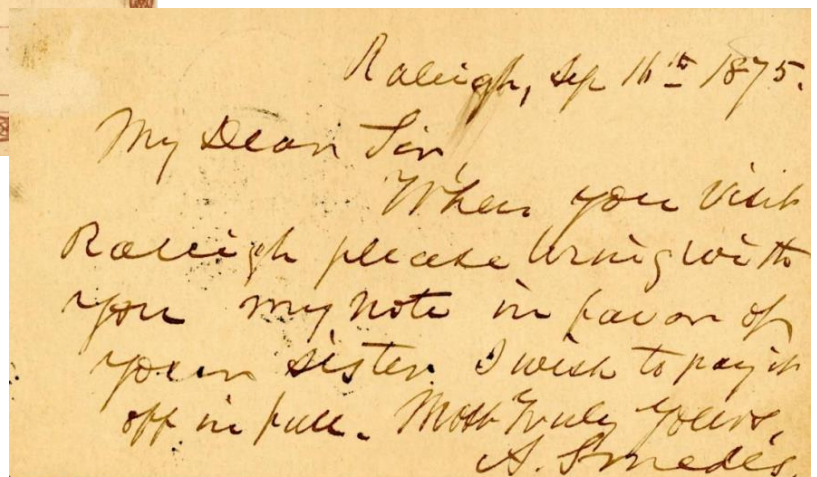 Raleigh, Sep 16th 1875.
My Dear Sir,
When you visit
Raleigh please bring with
you my note in favor of
your sister. I wish to pay it
off in full. Most Truly Yours,
A. Smedes.